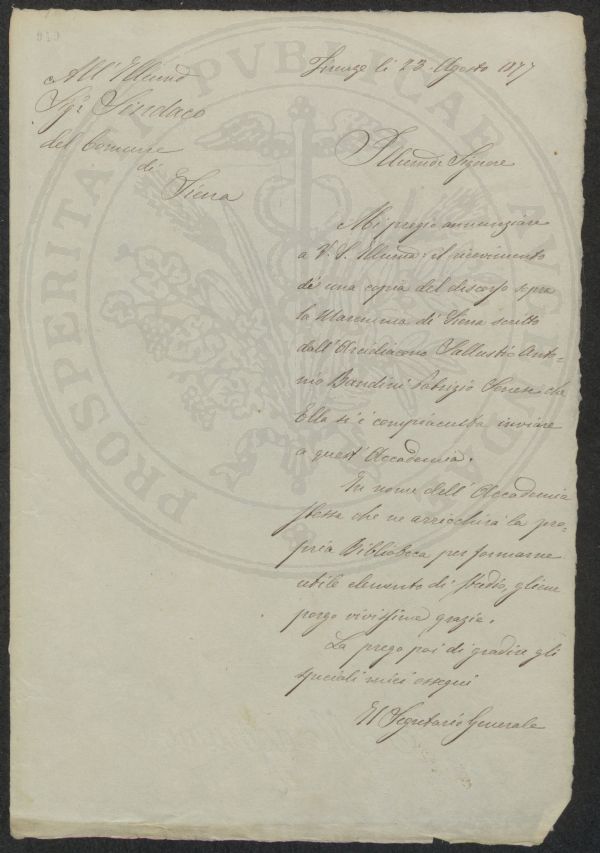 Firenze li 23 Agosto 1877
All' Illmo
Sigr Sindaco
del Comune
di
Siena
Illmo Signore
Mi pregio annunziare
a V. S. Illma; il ricevimento
di una copia del discorso sopra
la Maremma di Siena scritto
dall' Arcidiacono Sallustio Anto-
nio Bandini Patrizio Senese che
Ella si è compiaciuta inviare
a quest' Accademia.
In nome dell' Accademia
stessa che ne arricchirà la pro-
pria Biblioteca per formarne
utile elemento di studio, gliene
porgo vivissime grazie.
La prego poi di gradire gli
speciali miei ossequi
Il Segretario Generale
PROSPERITATI PUBLICAE AUGENDAE